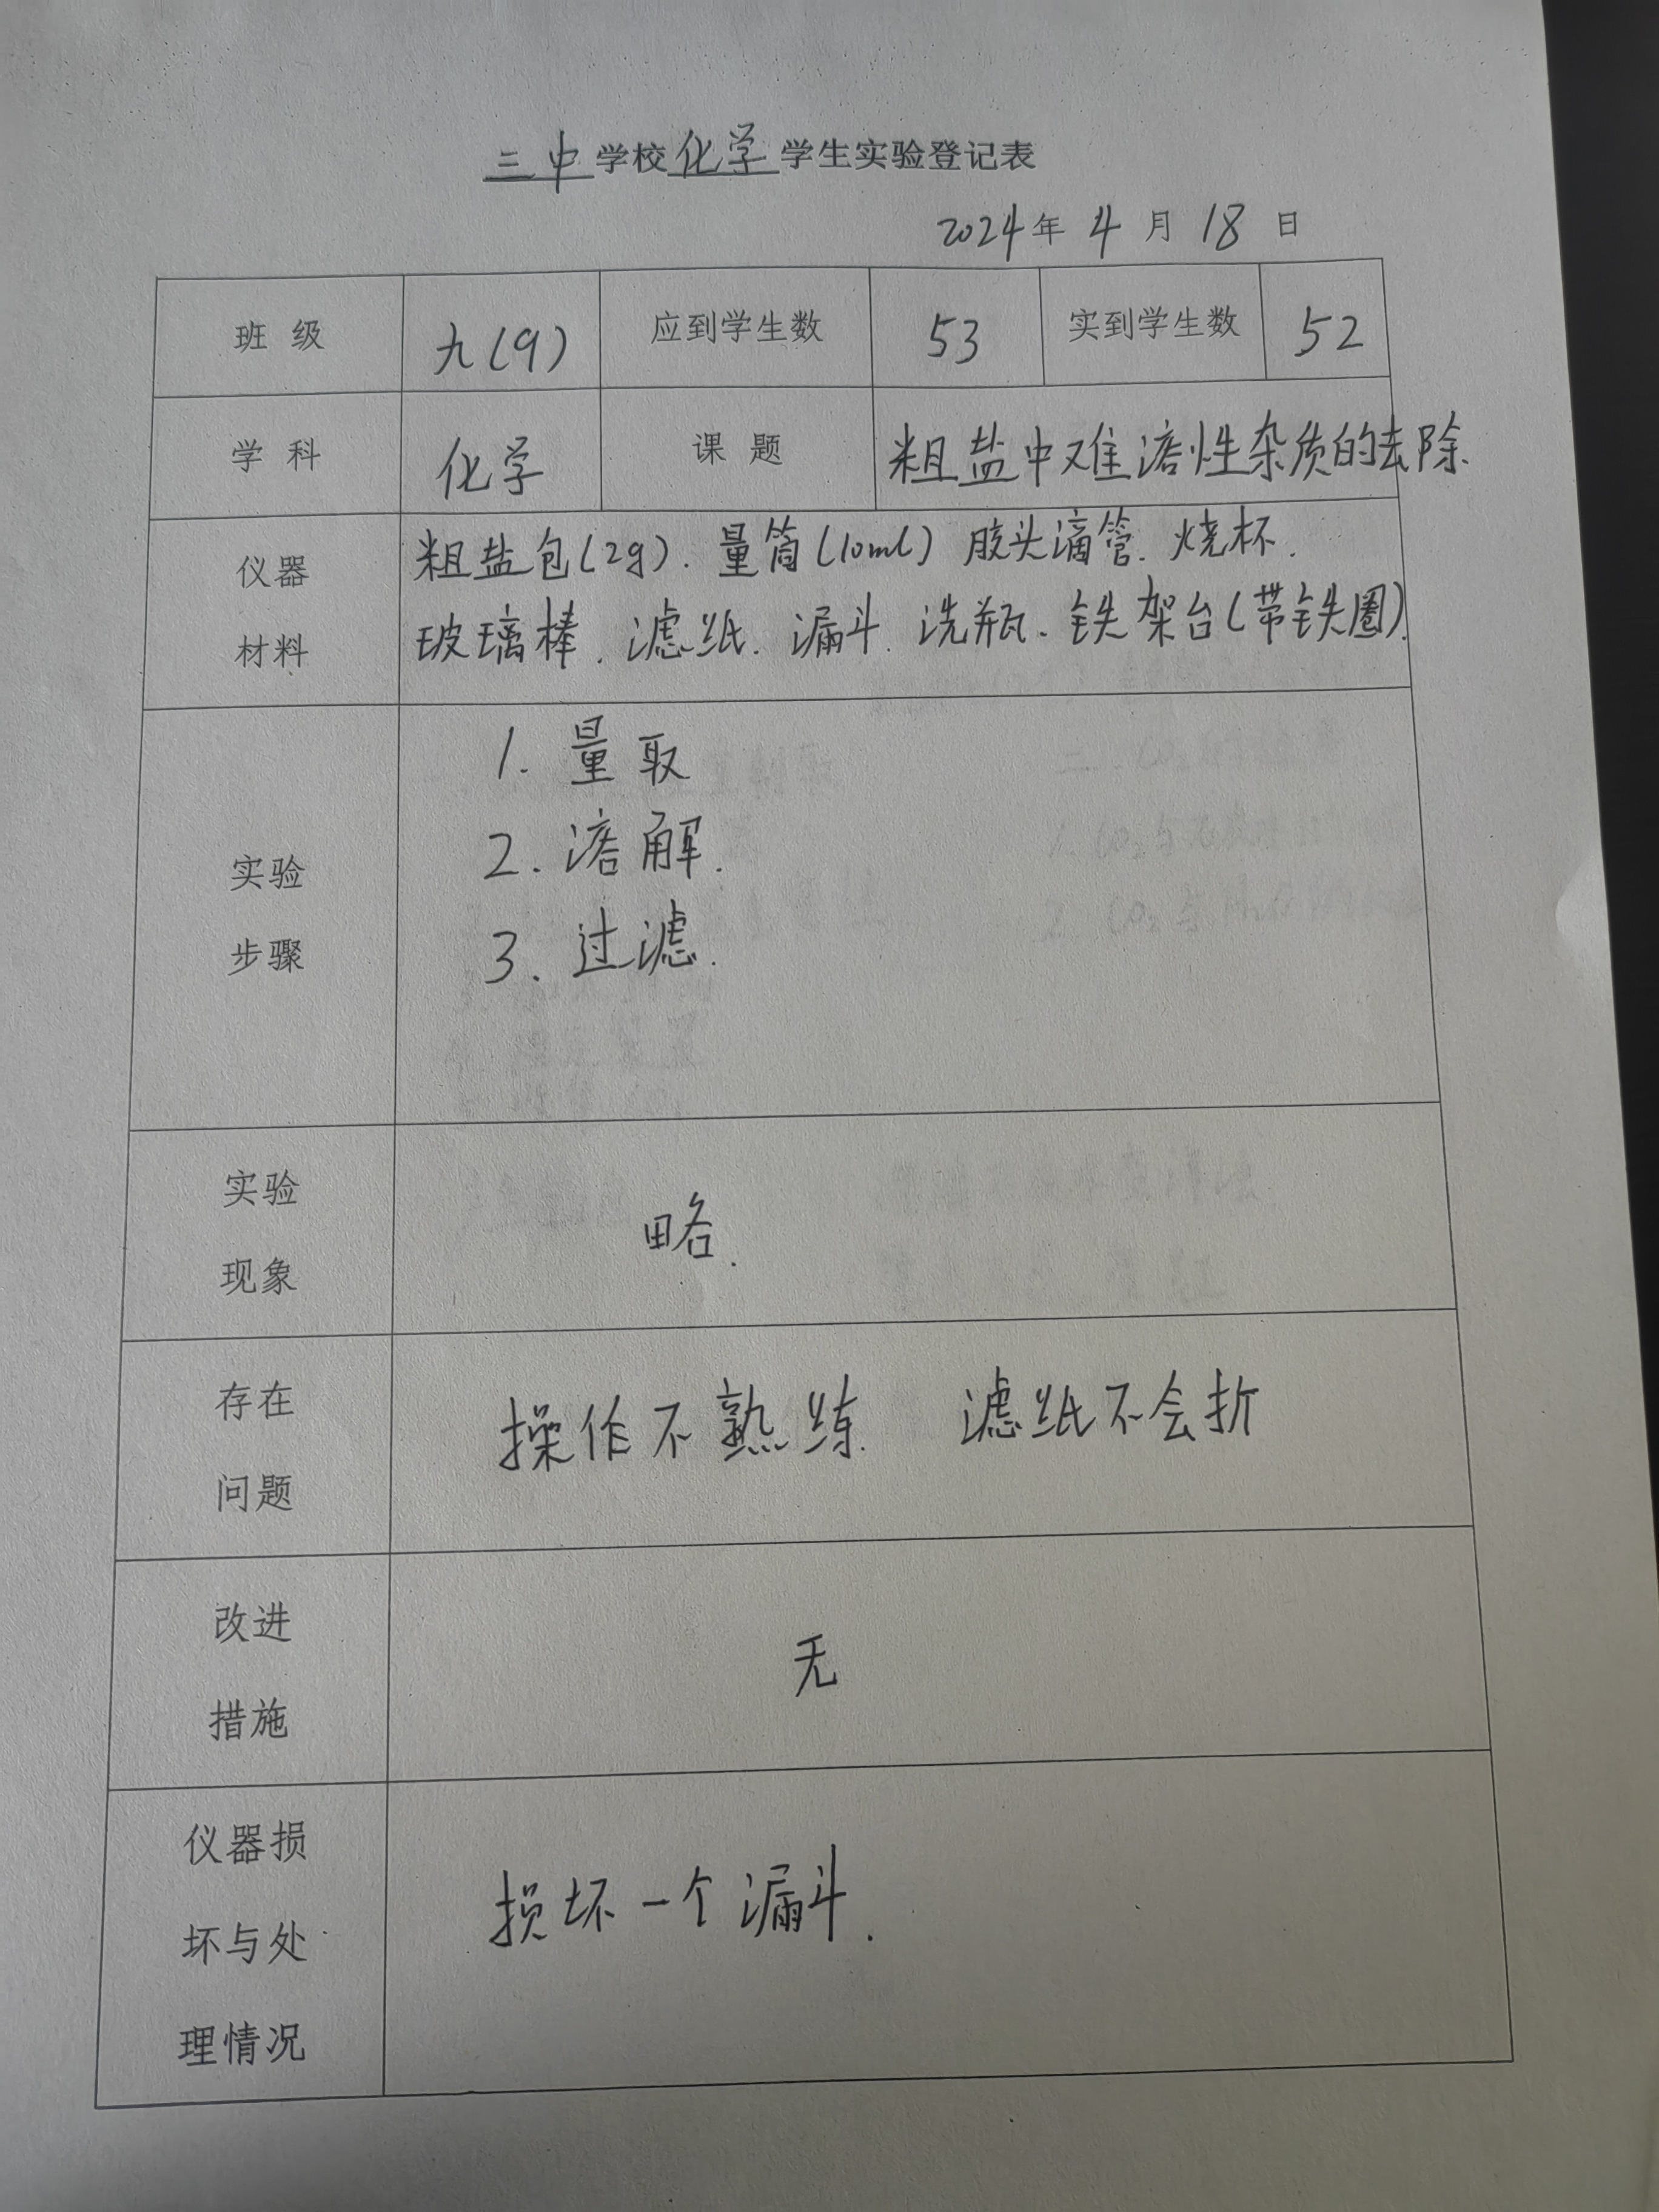 三中学校化学学生实验登记表
2024年4月18日
班级 九(9) 应到学生数 53 实到学生数 52
学科 化学 课题 粗盐中难溶性杂质的去除.
仪器
材料
粗盐包(2g). 量筒(10ml) 胶头滴管. 烧杯.
玻璃棒. 滤纸. 漏斗. 洗瓶. 铁架台(带铁圈).
实验
步骤
1. 量取
2. 溶解.
3. 过滤.
实验
现象
略.
存在
问题
操作不熟练. 滤纸不会折
改进
措施
无
仪器损
坏与处
理情况
损坏一个漏斗.